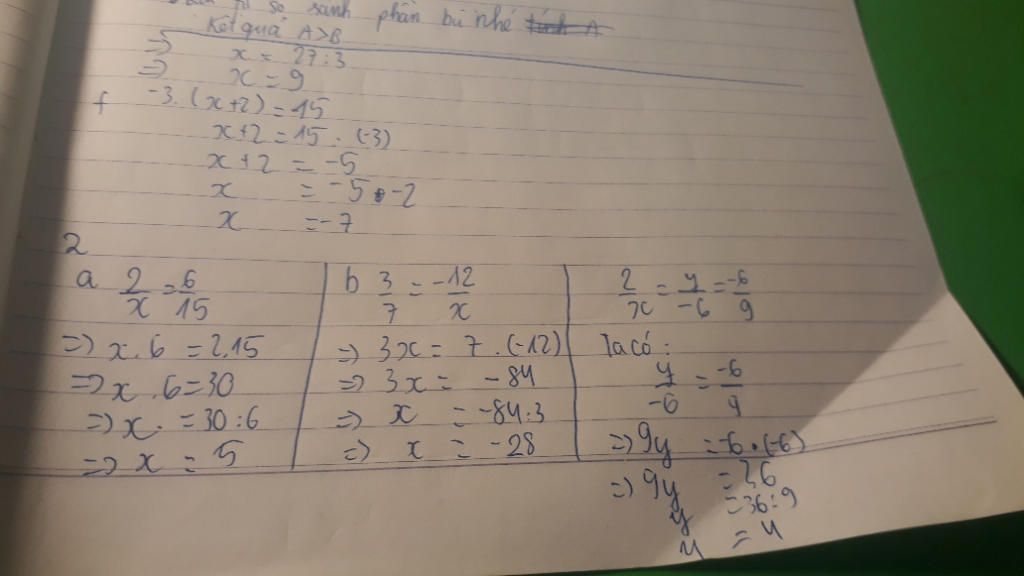 so sánh phần bù nhé
Kết quả A>B
=> x = 27:3
=> x = 9
f -3.(x+2) = 15
x+2 = 15 : (-3)
x+2 = -5
x = -5 -2
x = -7
2
a 2/x = 6/15
=> x.6 = 2.15
=> x.6 = 30
=> x. = 30:6
=> x = 5
b 3/7 = -12/x
=> 3x = 7.(-12)
=> 3x = -84
=> x = -84:3
=> x = -28
2/x = y/-6 = -6/9
Ta có:
y/-6 = -6/9
=> 9y = -6.(-6)
=> 9y = 36
y = 36:9
y = 4